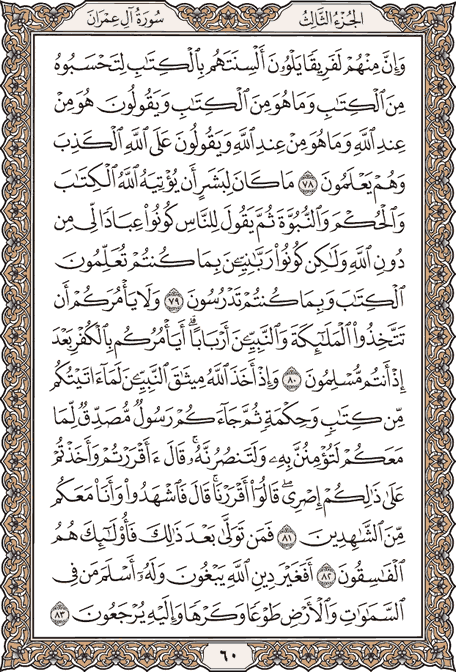 الجزء الثالث سورة آل عمران
وَإِنَّ مِنْهُمْ لَفَرِيقًا يَلْوُۥنَ أَلْسِنَتَهُم بِالْكِتَٰبِ لِتَحْسَبُوهُ
مِنَ الْكِتَٰبِ وَمَا هُوَ مِنَ الْكِتَٰبِ وَيَقُولُونَ هُوَ مِنْ
عِندِ اللَّهِ وَمَا هُوَ مِنْ عِندِ اللَّهِ وَيَقُولُونَ عَلَى اللَّهِ الْكَذِبَ
وَهُمْ يَعْلَمُونَ ٧٨ مَا كَانَ لِبَشَرٍ أَن يُؤْتِيَهُ اللَّهُ الْكِتَٰبَ
وَالْحُكْمَ وَالنُّبُوَّةَ ثُمَّ يَقُولَ لِلنَّاسِ كُونُوا۟ عِبَادًا لِّى مِن
دُونِ اللَّهِ وَلَٰكِن كُونُوا۟ رَبَّٰنِيِّۦنَ بِمَا كُنتُمْ تُعَلِّمُونَ
الْكِتَٰبَ وَبِمَا كُنتُمْ تَدْرُسُونَ ٧٩ وَلَا يَأْمُرَكُمْ أَن
تَتَّخِذُوا۟ الْمَلَٰٓئِكَةَ وَالنَّبِيِّۦنَ أَرْبَابًا ۗ أَيَأْمُرُكُم بِالْكُفْرِ بَعْدَ
إِذْ أَنتُم مُّسْلِمُونَ ٨٠ وَإِذْ أَخَذَ اللَّهُ مِيثَٰقَ النَّبِيِّۦنَ لَمَآ ءَاتَيْتُكُم
مِّن كِتَٰبٍ وَحِكْمَةٍ ثُمَّ جَآءَكُمْ رَسُولٌ مُّصَدِّقٌ لِّمَا
مَعَكُمْ لَتُؤْمِنُنَّ بِهِۦ وَلَتَنصُرُنَّهُۥ ۚ قَالَ ءَأَقْرَرْتُمْ وَأَخَذْتُمْ
عَلَىٰ ذَٰلِكُمْ إِصْرِى ۖ قَالُوٓا۟ أَقْرَرْنَا ۚ قَالَ فَاشْهَدُوا۟ وَأَنَا۠ مَعَكُم
مِّنَ الشَّٰهِدِينَ ٨١ فَمَن تَوَلَّىٰ بَعْدَ ذَٰلِكَ فَأُو۟لَٰٓئِكَ هُمُ
الْفَٰسِقُونَ ٨٢ أَفَغَيْرَ دِينِ اللَّهِ يَبْغُونَ وَلَهُۥٓ أَسْلَمَ مَن فِى
السَّمَٰوَٰتِ وَالْأَرْضِ طَوْعًا وَكَرْهًا وَإِلَيْهِ يُرْجَعُونَ ٨٣
٦٠